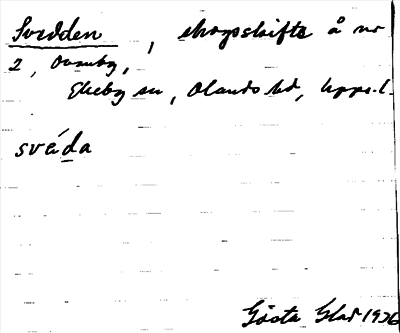 Svedden, skogsskifte å nr
2, Ovanby,
Ekeby sn, Olands hd, Upps. l.
svéda
Gösta Glad 1926